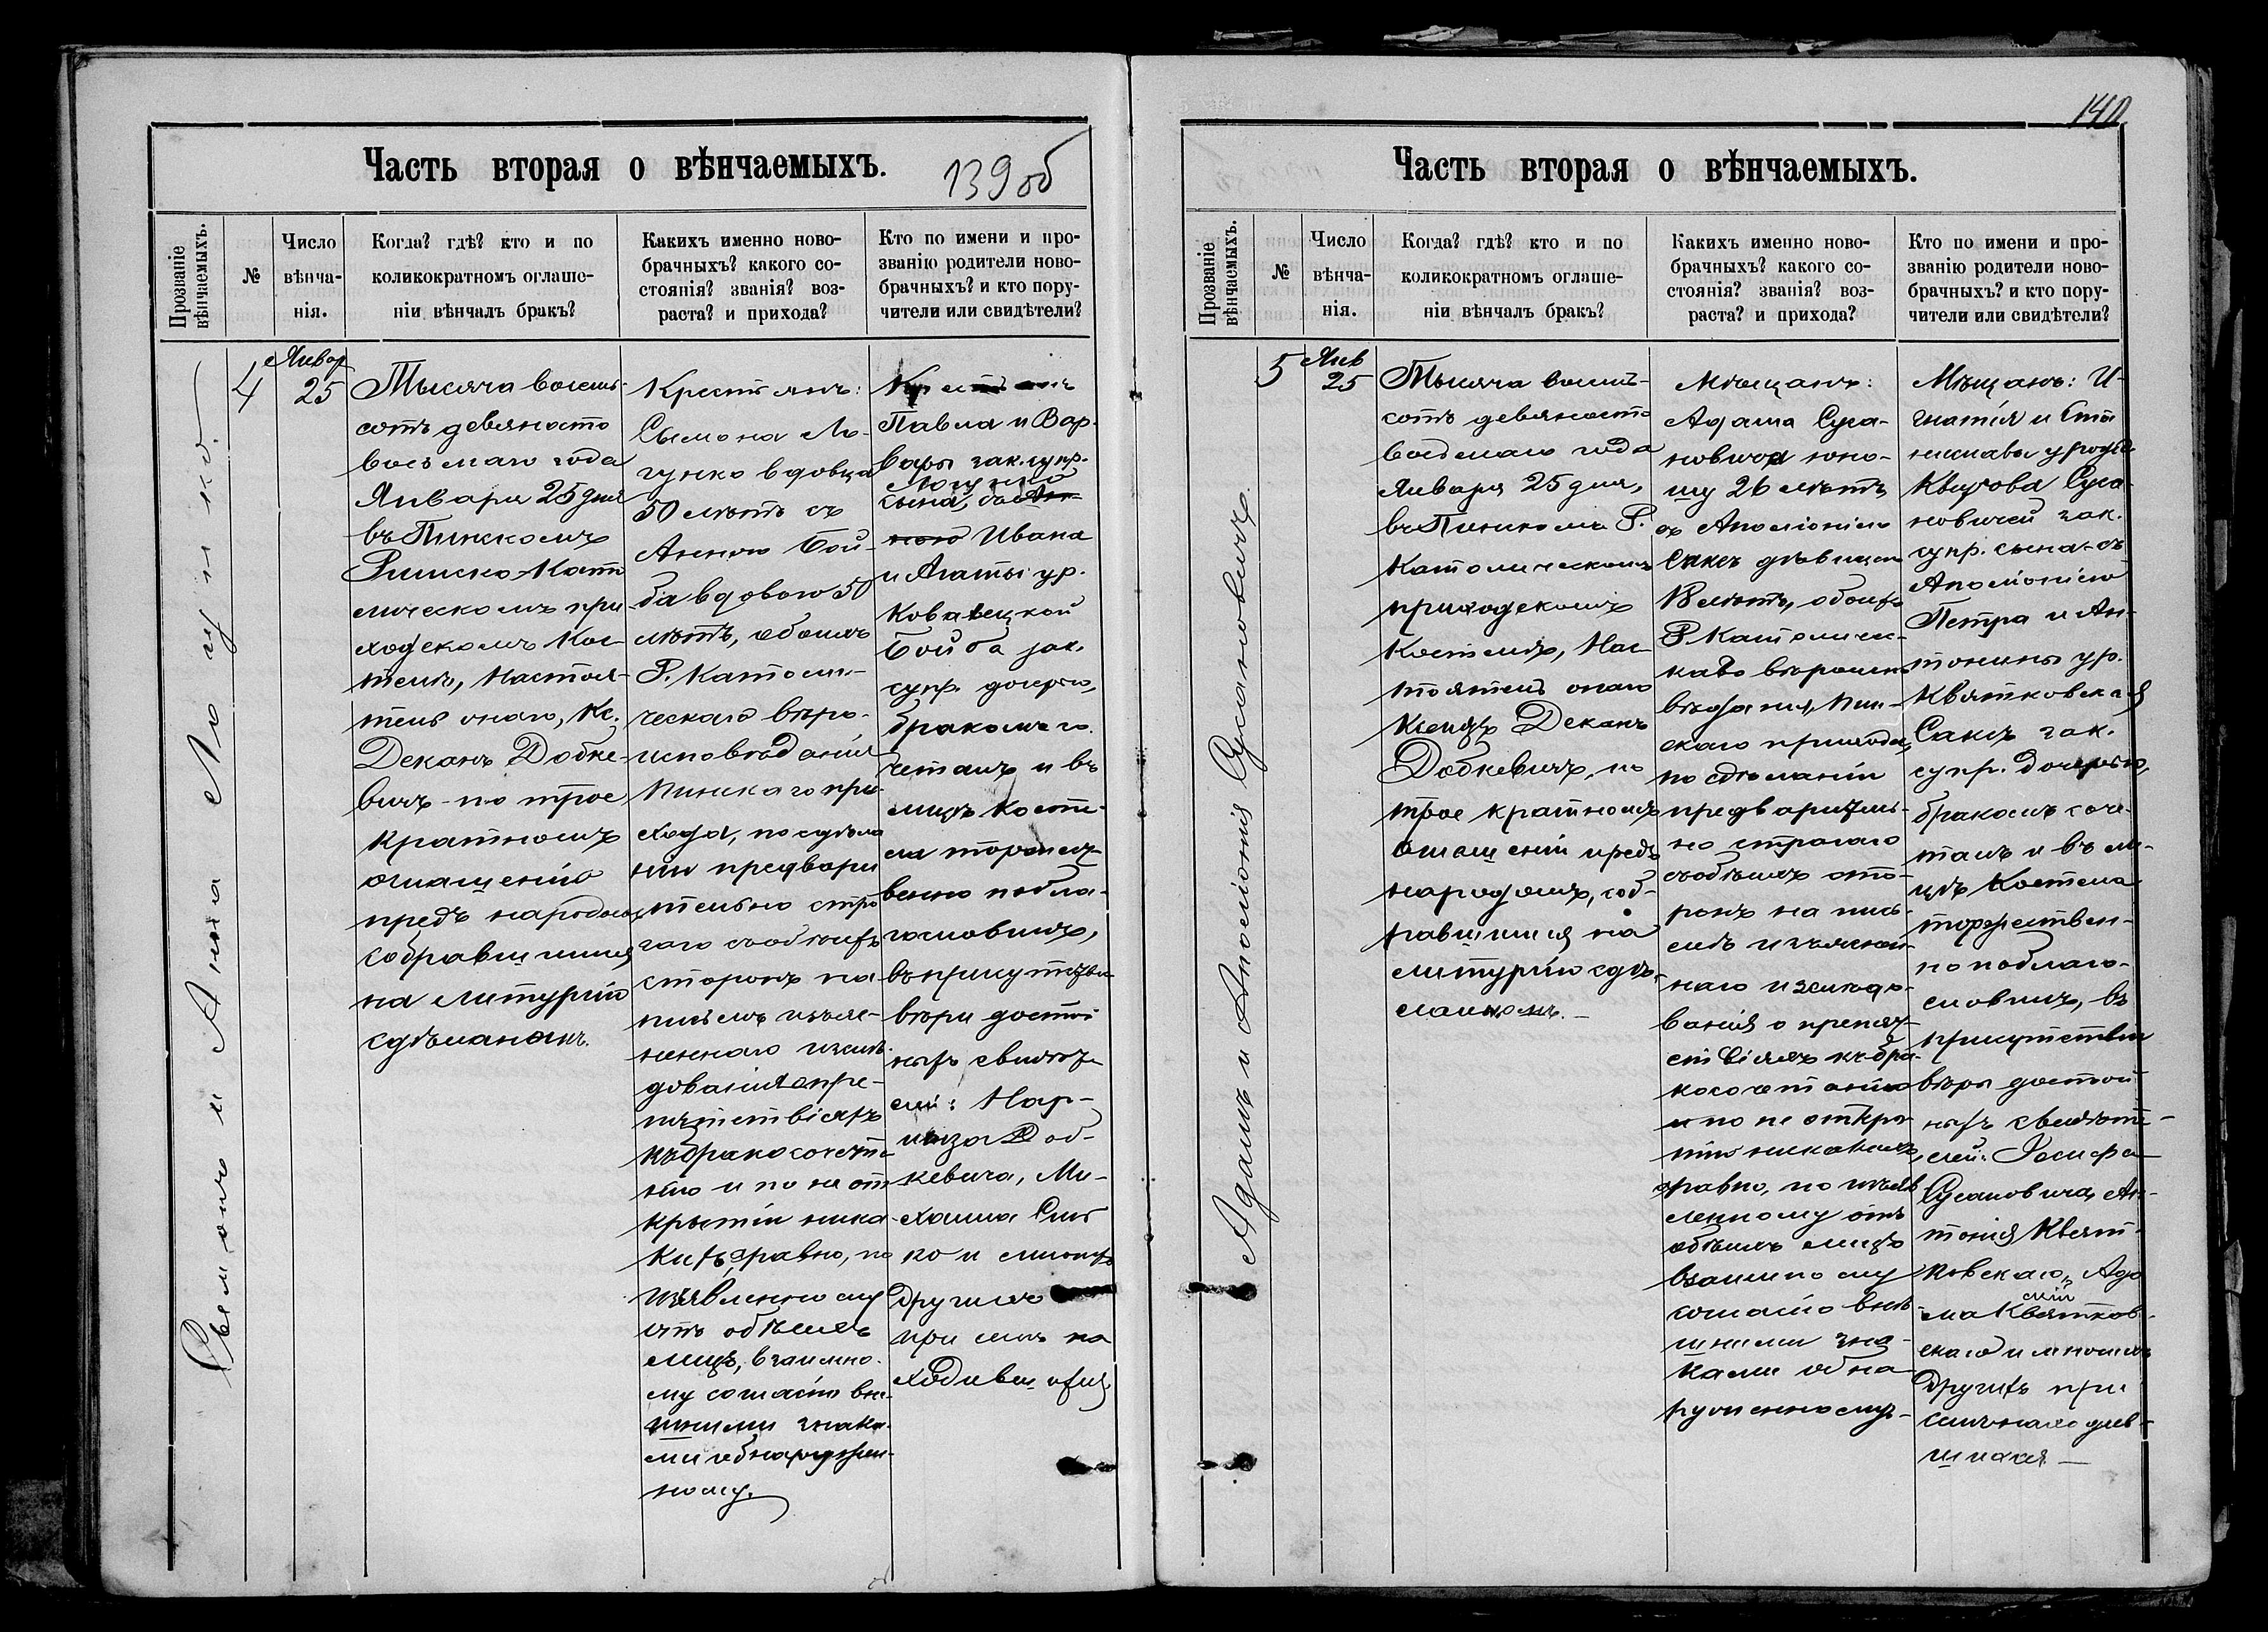 Часть вторая о вѣнчаемыхъ.
139 об
Прозваніе вѣнчаемыхъ.
№
Число вѣнча-
нія.
Когда? гдѣ? кто и по
коликократномъ оглаше-
ніи вѣнчалъ бракъ?
Какихъ именно ново-
брачныхъ? какого со-
стоянія? званія? воз-
раста? и прихода?
Кто по имени и про-
званію родители ново-
брачныхъ? и кто пору-
чители или свидѣтели?
Сымонъ и Анна Логунко
4
Январ
25
Тысяча восемь-
сотъ девяносто
восьмаго года
Января 25 дня
въ Пинскомъ
Римско-Като
лическомъ при
ходскомъ Кос-
телѣ, Настоя-
тель онаго, Кс.
Деканъ Добке-
вичъ - по трое
кратномъ
оглашеніи
предъ народомъ
собравшимся
на литургію
сдѣланомъ.
Крестьянъ:
Сымона Ло-
гунко вдовца
50 лѣтъ съ
Анною Бой-
ба вдовою 50
лѣтъ, обоихъ
Р. Католи-
ческаго вѣро-
исповѣданія
Пинскаго при-
хода, по сдѣла
ніи предвари
тельно стро
гаго съ обоихъ
сторонъ на
письмѣ изъяс-
неннаго изслѣ-
дованія о пре-
пятствіяхъ
къ бракосочета-
нію и по не от
крытіи ника
кихъ, равно, по
изъявленному
отъ обѣихъ
лицъ, взаимно-
му согласію внѣ-
шними знака-
ми обнаружен-
ному.
Крестьянъ
Павла и Вар-
вары зак. супр.
Логунко
сына,
Ивана
и Агаты ур.
Ковалецкой
Бойба зак.
супр. дочерью,
бракомъ со-
четалъ и въ
лицѣ Косте-
ла торжест-
венно побла-
гословилъ,
въ присутствіи
вѣры достой
ныхъ свидѣте
лей: Нар-
циза Доб-
кевича, Ми-
хаила
и многихъ
другихъ
при семъ на
ходившихся
140
Часть вторая о вѣнчаемыхъ.
Прозваніе вѣнчаемыхъ.
№
Число вѣнча-
нія.
Когда? гдѣ? кто и по
коликократномъ оглаше-
ніи вѣнчалъ бракъ?
Какихъ именно ново-
брачныхъ? какого со-
стоянія? званія? воз-
раста? и прихода?
Кто по имени и про-
званію родители ново-
брачныхъ? и кто пору-
чители или свидѣтели?
Адамъ и Аполіонія Сусановичъ
5
Янв
25
Тысяча восемь-
сотъ девяносто
восьмаго года
Января 25 дня,
въ Пинскомъ Р.
Католическомъ
приходскомъ
Костелѣ, Нас
тоятель онаго
Ксендзъ Деканъ
Добкевичъ, по
трое кратномъ
оглашеніи предъ
народомъ, соб-
равшимся на
литургію сдѣ-
ланномъ.-
Мѣщанъ:
Адама Суса-
новича юно-
шу 26 лѣтъ
съ Аполіоніею
Сакъ дѣвицею
18 лѣтъ, обоихъ
Р. Католичес-
каго вѣроиспо
вѣданія, Пин-
скаго прихода,
по сдѣланіи
предваритель-
но строгаго
съ обѣихъ сто-
ронъ на пись-
мѣ изъяснен-
наго изслѣдо-
ванія о препят-
ствіяхъ къ бра-
косочетанію
и по не откры-
тію никакихъ,
равно, по изъяв
ленному отъ
обѣихъ лицъ
взаимному
согласію внѣ
шними зна-
ками обна
руженному-
Мѣщанъ: И-
гнатія и Ста
ниславы урожд.
Суса-
новичей зак.
супр. сына - съ
Аполіоніею
Петра и Ан-
тонины ур.
Квятковская
Сакъ зак.
супр. дочерью,
бракомъ соче-
талъ и въ ли-
цѣ Костела
торжествен-
но поблаго-
словилъ, въ
присутствіи
вѣры достой
ныхъ свидѣте-
лей: Іосифа
Сусановича, Ан-
тонія Квят-
ковскаго, Ада
ма Квятков-
скаго и многихъ
другихъ при
семъ находив-
шихся —